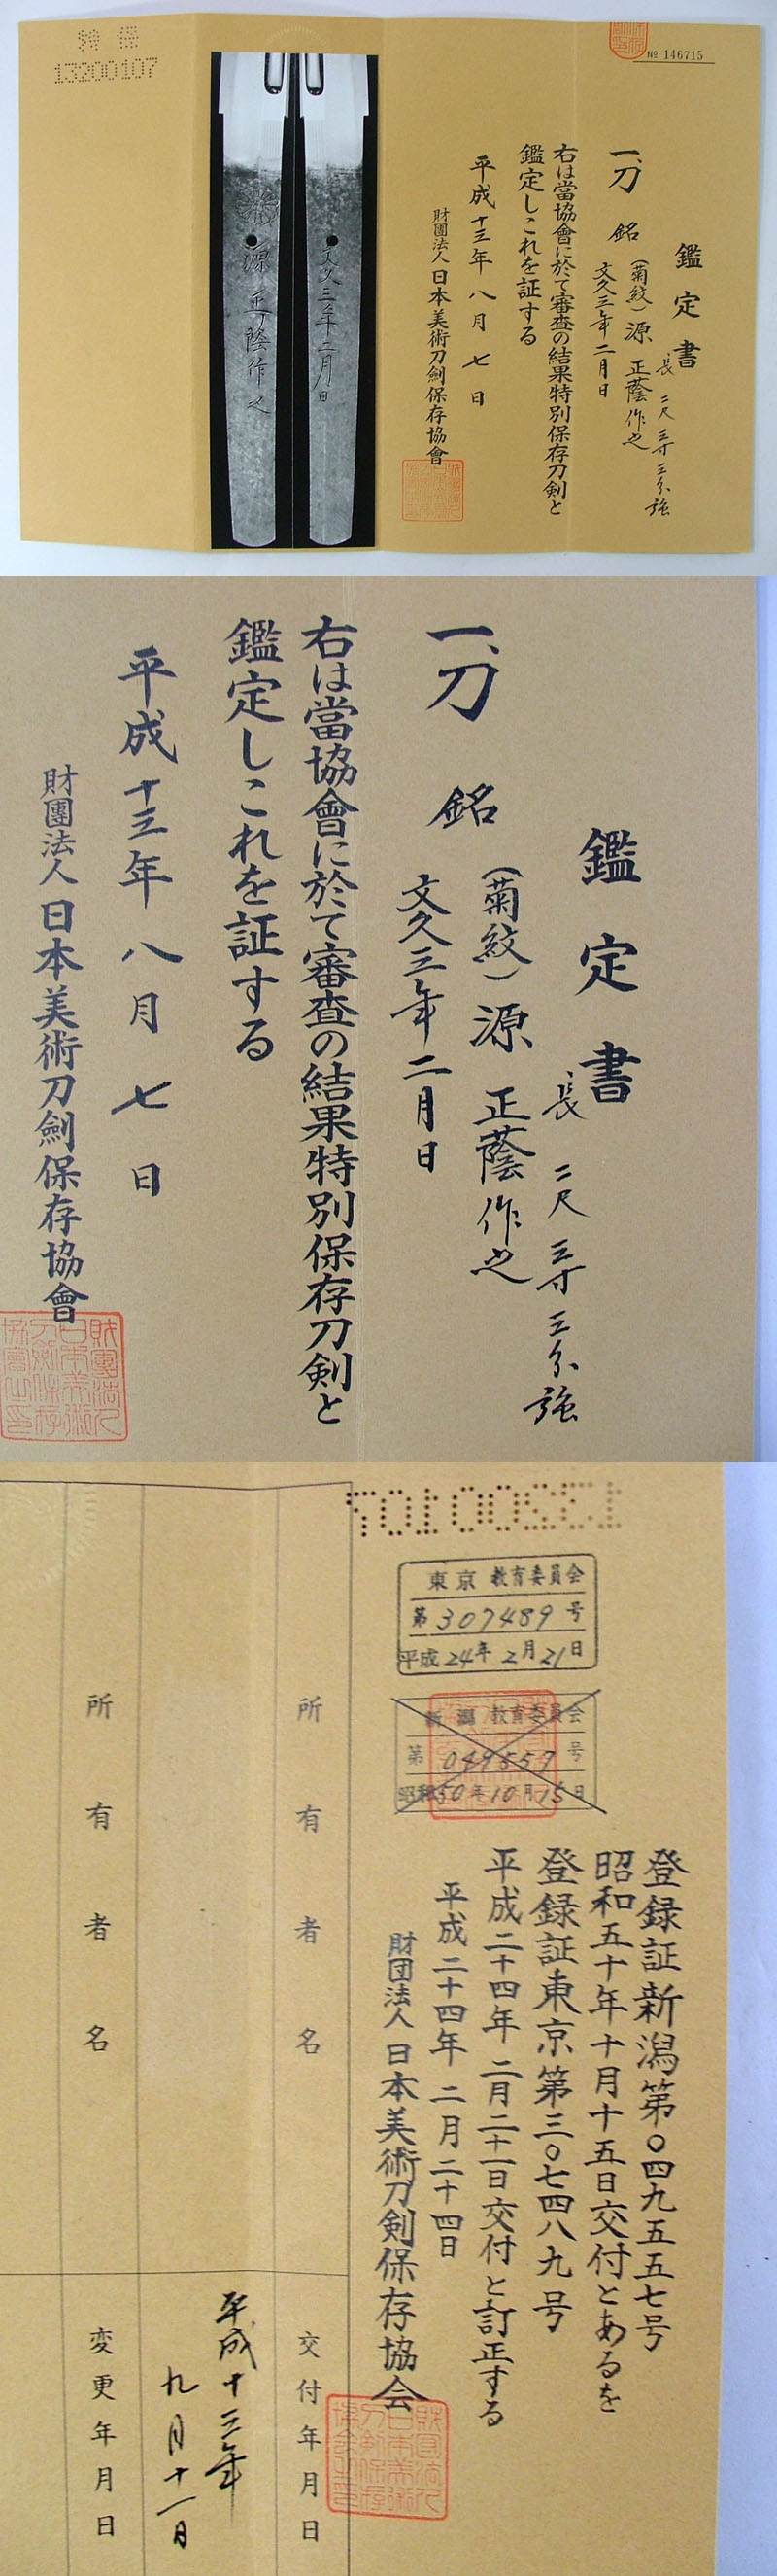 特保
13200107
No 146715
鑑定書
長 二尺三寸三分強
一、刀 銘 (菊紋)源 正蔭作之
文久三年二月日
右は當協會に於て審査の結果特別保存刀剣と
鑑定しこれを証する
平成十三年八月七日
財團法人 日本美術刀劍保存協會
文久三年二月日
源 正蔭作之
鑑定書
長 二尺三寸三分強
一、刀 銘 (菊紋)源 正蔭作之
文久三年二月日
右は當協會に於て審査の結果特別保存刀剣と
鑑定しこれを証する
平成十三年八月七日
財團法人 日本美術刀劍保存協會
13200107
東京 教育委員会
第307489号
平成24年2月21日
新潟 教育委員会
第049557号
昭和50年10月15日
登録証新潟第〇四九五五七号
昭和五十年十月十五日交付とあるを
登録証東京第三〇七四八九号
平成二十四年二月二十一日交付と訂正する
平成二十四年二月二十四日
財団法人 日本美術刀剣保存協会
所有者名
交付年月日
平成十三年
九月十一日
所有者名
変更年月日